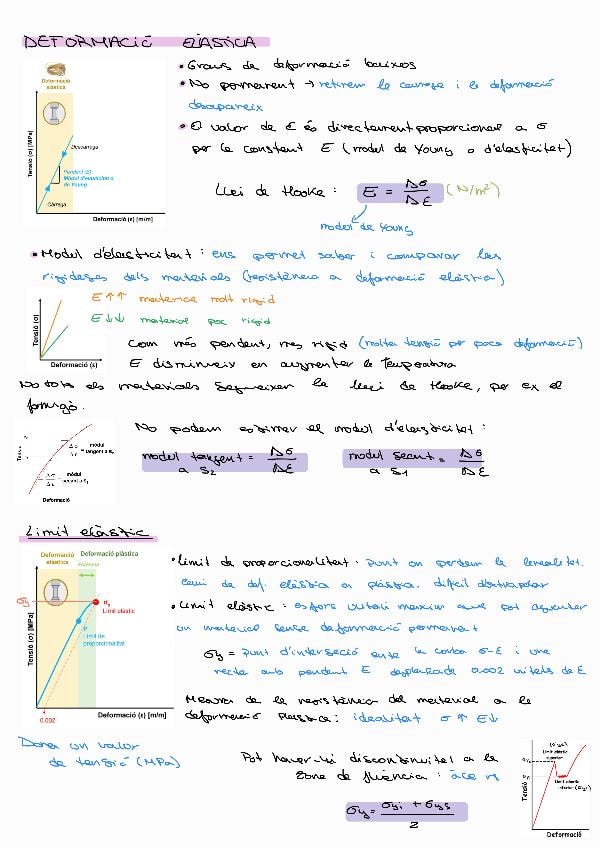 DEFORMACIÓ ELÀSTICA
Deformació
elàstica
Tensió (σ) [MPa]
Descàrrega
Pendent (E)
Mòdul d'elasticitat o
de Young
Càrrega
Deformació (ε) [m/m]
• Graus de deformació baixos
• No permanent → retirem la càrrega i la deformació
desapareix
• El valor de ε és directament proporcional a σ
per la constant E (mòdul de Young o d'elasticitat)
Llei de Hooke: E = Δσ / Δε (N/m²)
mòdul de Young
• Mòdul d'elasticitat: ens permet saber i comparar les
rigideses dels materials (resistència a deformació elàstica)
Tensió (σ)
Deformació (ε)
E↑↑ material molt rígid
E↓↓ material poc rígid
Com més pendent, més rígid (molta tensió per poca deformació)
E disminueix en augmentar la temperatura
No tots els materials segueixen la llei de Hooke, per ex el
formigó.
Δσ / Δε = mòdul
tangent a s₂
Δσ / Δε = mòdul
secant a s₁
Deformació
No podem estimar el mòdul d'elasticitat:
mòdul tangent = Δσ / Δε
a S₂
mòdul secant = Δσ / Δε
a S₁
Límit elàstic
Deformació
elàstica
Deformació plàstica
Fluència
σy
σy
Límit elàstic
P
Límit de
proporcionalitat
Tensió (σ) [MPa]
0.002
Deformació (ε) [m/m]
• Límit de proporcionalitat: punt on perdem la linealitat.
canvi de def. elàstica a plàstica. difícil d'extrapolar
• Límit elàstic: esforç unitari màxim que pot aguantar
un material sense deformació permanent
σy = punt d'intersecció entre la corba σ-ε i una
recta amb pendent E desplaçada 0.002 unitats de ε
Mesura de la resistència del material a la
deformació plàstica: idealitat σ↑ E↓
Dona un valor
de tensió (MPa)
Pot haver-hi discontinuïtat a la
zona de fluència:
σy = σyi + σys / 2
Tensió
Límit elàstic
superior
Límit elàstic
inferior (σyi)
Deformació